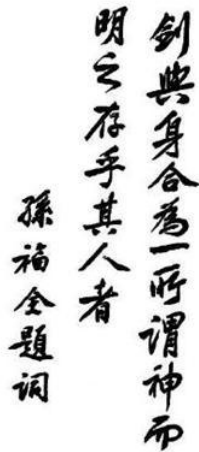 劍與身合為一所謂神而
明之存乎其人者
孫福全題詞